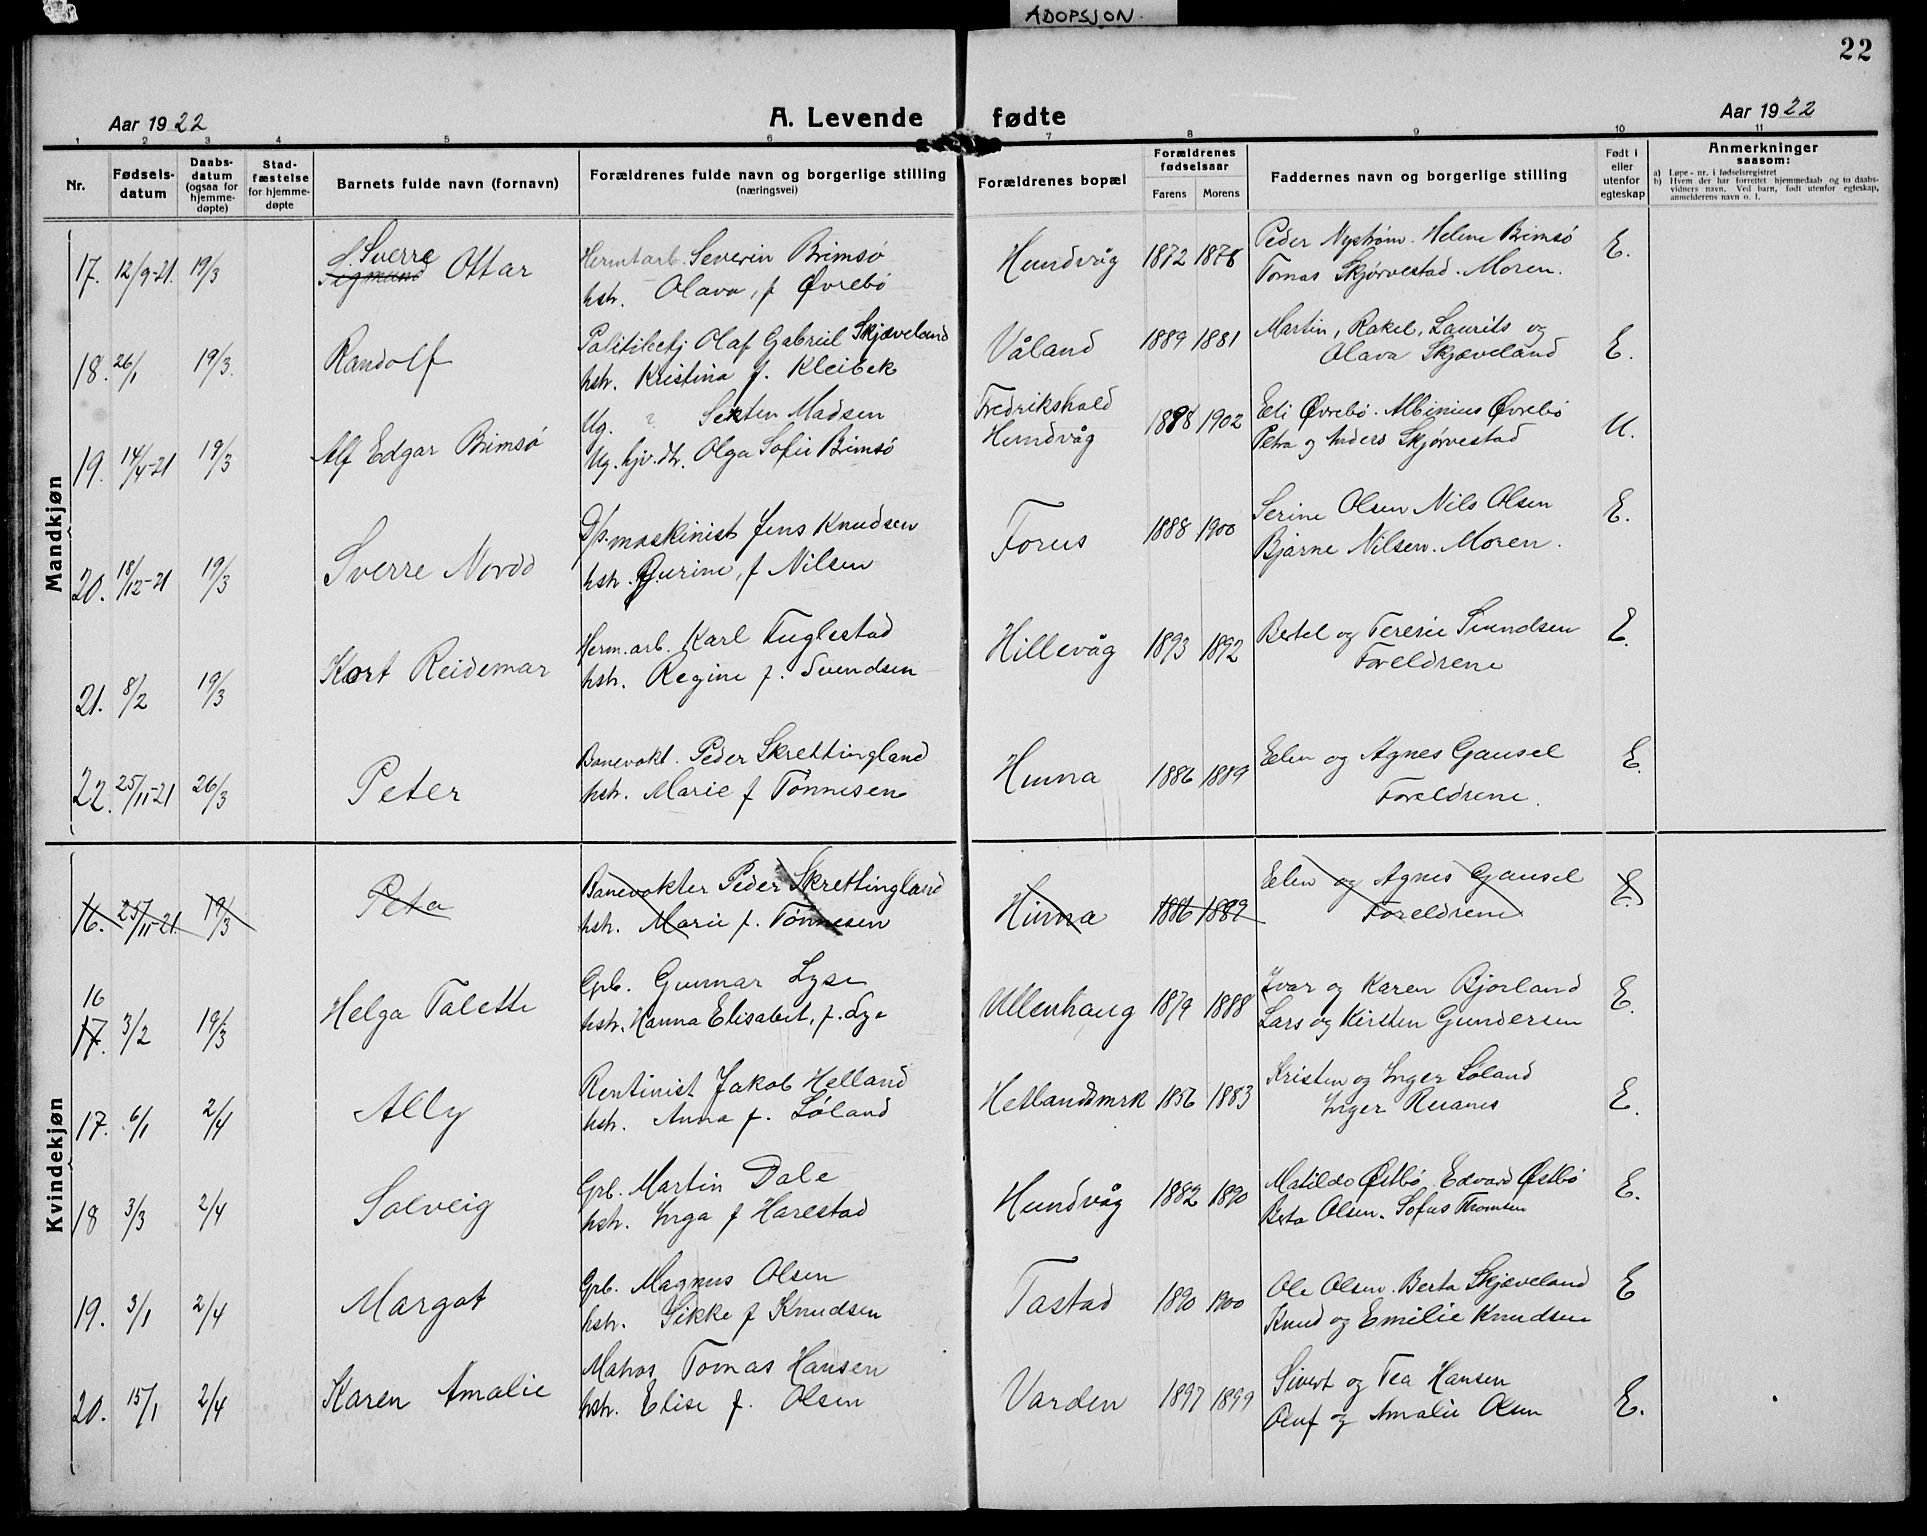 ADOPSJON.
22
Aar 1922 A. Levende fødte Aar 1922
1 2 3 4 5 6 7 8 9 10 11
Nr. Fødsels-datum Daabs-datum (ogsaa for hjemme-døpte) Stad-fæstelse for hjemme-døpte Barnets fulde navn (fornavn) Forældrenes fulde navn og borgerlige stilling (næringsvei) Forældrenes bopæl Forældrenes fødselsaar Farens Morens Faddernes navn og borgerlige stilling Født i eller utenfor egteskap Anmerkninger saasom:
a) Løpe-nr. i fødselsregistret
b) Hvem der har forrettet hjemmedaab og to daabs-
vidners navn. Ved barn, født utenfor egteskap,
anmelderens navn o. l.
Mandkjøn
Sverre Hermtarb. Severin Brimsø Peder Nystrøm. Helene Brimsø
17. 12/9-21. 19/3 Segmund Ottar hstr. Olava, f Øvrebø Hundvåg 1872 1878 Tomas Skjørvestad. Moren. E.
Politibetj Olaf Gabriel Skjæveland Martin, Rakel, Laurits og
18. 26/1 19/3. Randolf hstr. Kristina f. Kleibek Våland 1889 1881 Olava Skjæveland E.
Ug. ? Sexten Madsen Fredrikshald Eli Øvrebø. Albinius Øvrebø
19. 14/4-21 19/3 Alf Edgar Brimsø Ug. hjv. dtr. Olga Sofie Brimsø Hundvåg 1898 1902 Petra og Anders Skjørvestad U.
D/s. maskinist Jens Knudsen Serine Olsen Nils Olsen
20. 18/12-21 19/3 Sverre Nordd hstr. Gurine, f Nilsen Forus 1888 1900 Bjarne Nilsen. Moren. E.
Herm. arb. Karl Fuglestad Bertel og Teresie Svendsen
21. 8/2 19/3 Kort Reidemar hstr. Regine f. Svendsen Hillevåg 1893 1892 Foreldrene E.
Banevokt. Peder Skrettingland Elen og Agnes Gausel
22. 25/11-21 26/3 Peter hstr. Marie f Tønnesen Hinna 1886 1889 Foreldrene. E.
Kvindekjøn
Banevokter Peder Skrettingland Elen og Agnes Gausel
16. 25/11-21. 19/3 Peta hstr. Marie f. Tønnesen Hinna 1886 1889 Foreldrene E.
16 Grb. Gunnar Lyse Ivar og Karen Bjorland
17. 3/2 19/3 Helga Talette hstr. Hanna Elisabet, f. Lye Ullenhaug 1879 1888 Lars og Kirsten Gundersen E.
Rentinist Jakob Helland Kristen og Inger Løland
17. 6/1 2/4 Ally hstr. Anna f. Løland Hetlandsmrk 1856 1883 Inger E.
Grb. Martin Dale Matilde Østbø. Edvard Østbø
18 3/3 2/4 Solveig hstr. Inga f Harestad Hundvåg 1882 1890 Berta Olsen. Sofus Thomsen E.
Grb. Magnus Olsen Ole Olsen. Berta Skjæveland
19. 3/1 2/4 Margot hstr. Sikke f Knudsen Tastad 1890 1900 Knud og Emilie Knudsen E
Matros Tomas Hansen Sivert og Tea Hansen
20. 15/1 2/4 Karen Amalie hstr. Elise f. Olsen Varden 1897 1899 Oluf og Amalie Olsen E.